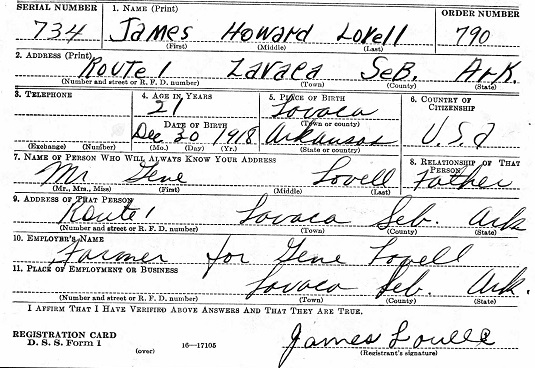 SERIAL NUMBER 1. NAME (Print) ORDER NUMBER
734 James Howard Lovell 790
(First) (Middle) (Last)
2. ADDRESS (Print)
Route 1 Lavaca Seb. Ark.
(Number and street or R. F. D. number) (Town) (County) (State)
3. TELEPHONE 4. AGE IN YEARS 5. PLACE OF BIRTH 6. COUNTRY OF CITIZENSHIP
21 Lavaca U.S.A
(Town or county)
DATE OF BIRTH
Dec 20 1918 Arkansas
(Exchange) (Number) (Mo.) (Day) (Yr.) (State or country)
7. NAME OF PERSON WHO WILL ALWAYS KNOW YOUR ADDRESS 8. RELATIONSHIP OF THAT PERSON
Mr Gene Lovell Father
(Mr., Mrs., Miss) (First) (Middle) (Last)
9. ADDRESS OF THAT PERSON
Route 1 Lavaca Seb. Ark
(Number and street or R. F. D. number) (Town) (County) (State)
10. EMPLOYER'S NAME
Farmer for Gene Lovell
11. PLACE OF EMPLOYMENT OR BUSINESS
Lavaca Seb. Ark.
(Number and street or R. F. D. number) (Town) (County) (State)
I AFFIRM THAT I HAVE VERIFIED ABOVE ANSWERS AND THAT THEY ARE TRUE.
REGISTRATION CARD
D. S. S. Form 1 (over) 16—17105
James Lovell
(Registrant's signature)